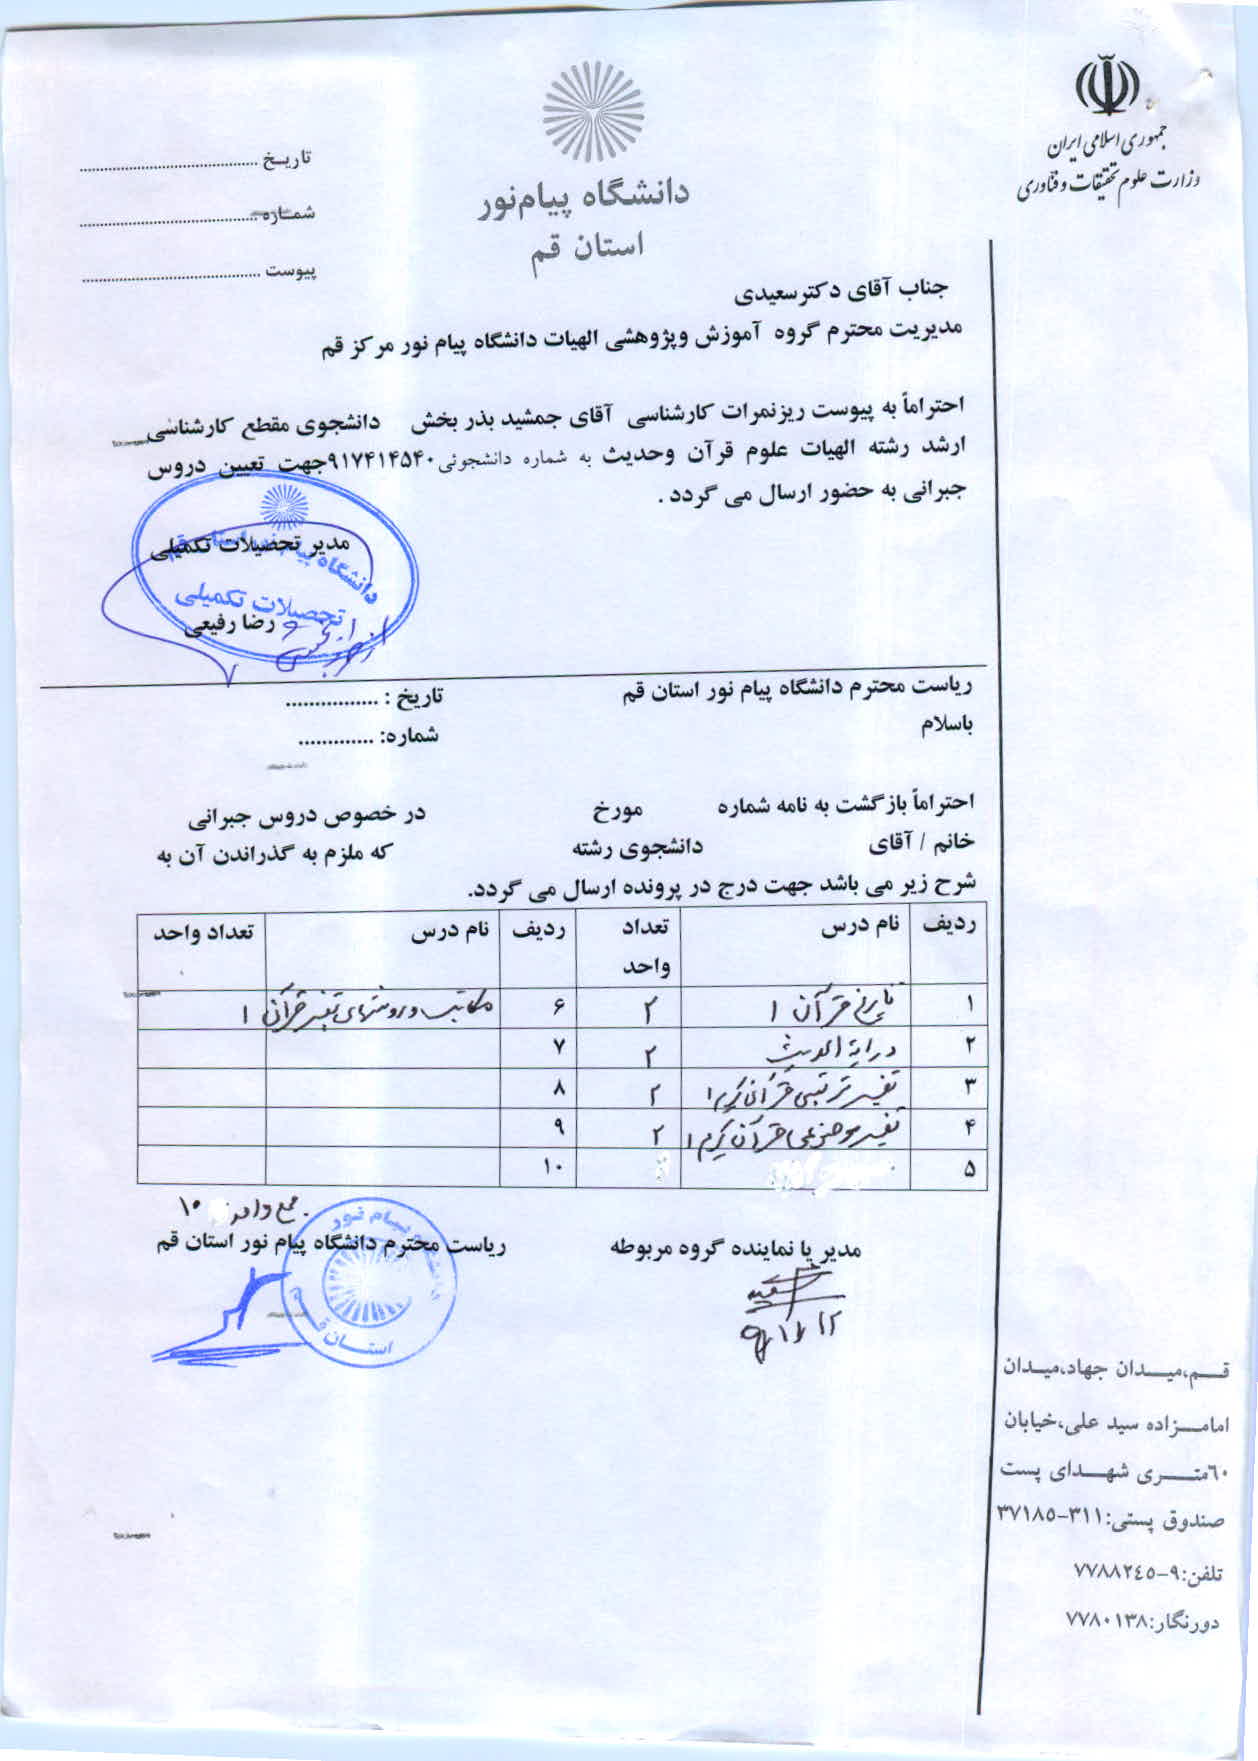 جمهوری اسلامی ایران
وزارت علوم تحقیقات و فناوری
دانشگاه پیام‌نور
استان قم
تاریخ ..........................................
شماره ..........................................
پیوست ..........................................
جناب آقای دکترسعیدی
مدیریت محترم گروه آموزش وپژوهشی الهیات دانشگاه پیام نور مرکز قم
احتراماً به پیوست ریزنمرات کارشناسی آقای جمشید بذر بخش دانشجوی مقطع کارشناسی
ارشد رشته الهیات علوم قرآن وحدیث به شماره دانشجوئی ۹۱۷۴۱۴۵۴۰جهت تعیین دروس
جبرانی به حضور ارسال می گردد .
مدیر تحصیلات تکمیلی
دانشگاه پیام نور استان قم
تحصیلات تکمیلی
رضا رفیعی
ریاست محترم دانشگاه پیام نور استان قم
تاریخ : ................
باسلام
شماره: .............
احتراماً بازگشت به نامه شماره مورخ در خصوص دروس جبرانی
خانم / آقای دانشجوی رشته که ملزم به گذراندن آن به
شرح زیر می باشد جهت درج در پرونده ارسال می گردد.
ردیف نام درس تعداد واحد ردیف نام درس تعداد واحد
۱ تاریخ قرآن ۱ ۲ ۶ مکاتب و روشهای تفسیر قرآن ۱
۲ درایة الحدیث ۲ ۷
۳ تفسیر ترتیبی قرآن کریم ۱ ۲ ۸
۴ تفسیر موضوعی قرآن کریم ۱ ۲ ۹
۵ ۱۰
جمع واحد ۱۰
مدیر یا نماینده گروه مربوطه
ریاست محترم دانشگاه پیام نور استان قم
دانشگاه پیام نور
استان قم
قم،میدان جهاد،میدان
امامزاده سید علی،خیابان
٦۰متری شهدای پست
صندوق پستی:۳۱۱-۳۷۱۸۵
تلفن:۹-۷۷۸۸۲٤۵
دورنگار:۷۷۸۰۱۳۸